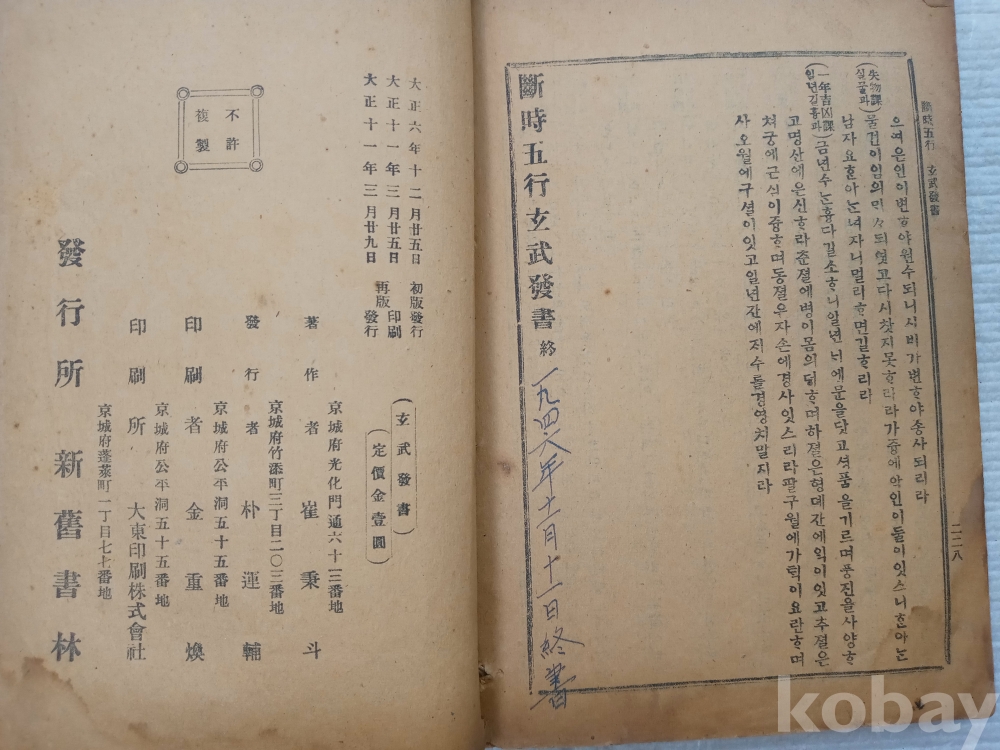 斷時五行 玄武發書
二二八
으여은인이변ᄒᆞ야원수되니시비가변ᄒᆞ야송사되리라
(失物課 실물과) 물건이임의 되엿고다시찻지못ᄒᆞ리라가즁에악인이들이잇스니ᄒᆞ아ᄂᆞᆫ
남자요ᄒᆞ아ᄂᆞᆫ녀자니멀리ᄒᆞ면길ᄒᆞ리라
(一年吉凶課 일년길흉과) 금년수ᄂᆞᆫ흉다길소ᄒᆞ니일년 에문을닷고셧품을기르며풍진을사양ᄒᆞ
고명산에은신ᄒᆞ라츈졀에병이몸의 ᄒᆞ며하졀은형뎨간에익이잇고추졀은
쳐궁에근심이즁ᄒᆞ며동졀은자손에경사잇스리라팔구월에가 이요란ᄒᆞ며
사오월에구셜이잇고일년간에저수를경영치말지라
斷時五行玄武發書 終
一九四六年十一月十一日終書
大正六年十二月廿五日 初版發行
大正十一年三月廿五日 再版印刷
大正十一年三月廿九日 再版發行
(玄武發書)
定價金壹圓
京城府光化門通六十三番地
著作者 崔秉斗
京城府竹添町三丁目二〇三番地
發行者 朴運輔
京城府公平洞五十五番地
印刷者 金重煥
京城府公平洞五十五番地
印刷所 大東印刷株式會社
京城府蓬萊町一丁目七七番地
發行所 新舊書林
不許
複製
kobay